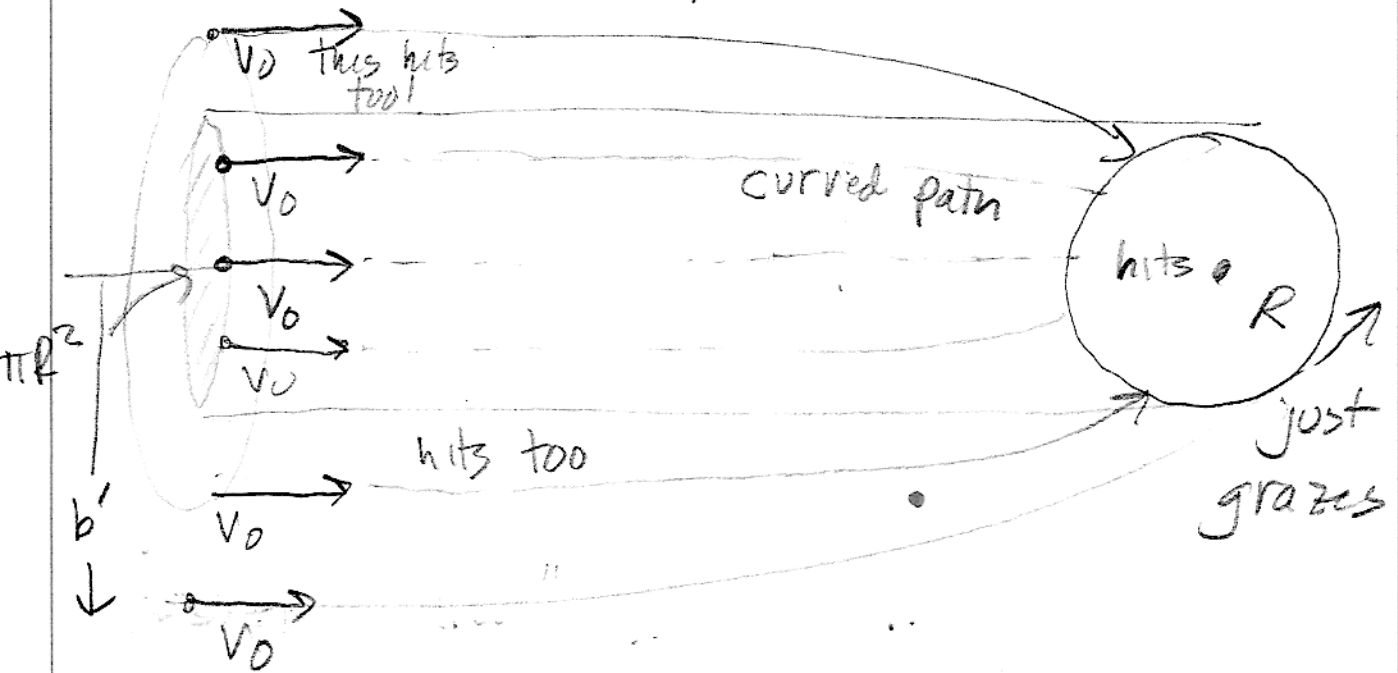 V0 this hits
too!
V0
curved path
V0
hits R
πR²
V0
just
hits too
grazes
b'
V0
V0